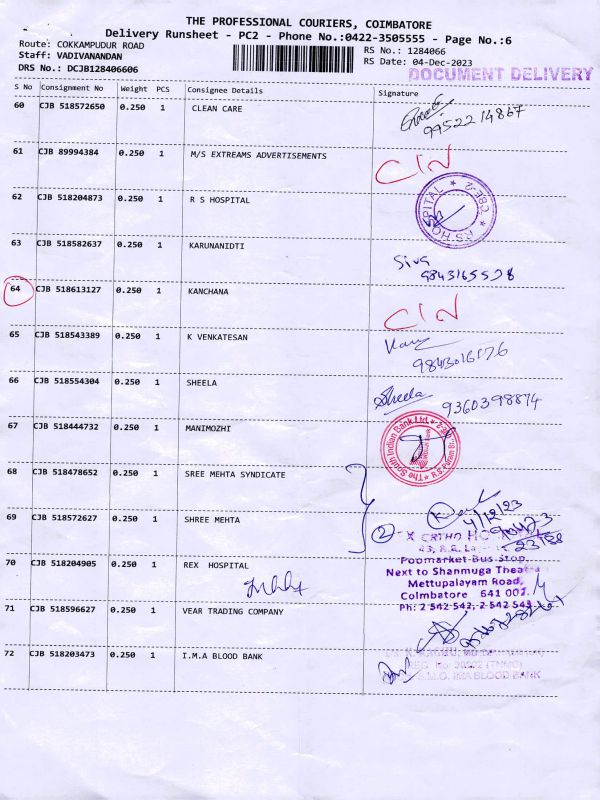 THE PROFESSIONAL COURIERS, COIMBATORE
Delivery Runsheet - PC2 - Phone No.:0422-3505555 - Page No.:6
Route: COKKAMPUDUR ROAD
RS No.: 1284066
Staff: VADIVANANDAN
RS Date: 04-Dec-2023
DRS No.: DCJB128406606
DOCUMENT DELIVERY
S No Consignment No Weight PCS Consignee Details Signature
60 CJB 518572650 0.250 1 CLEAN CARE
9952214867
61 CJB 89994384 0.250 1 M/S EXTREAMS ADVERTISEMENTS
62 CJB 518204873 0.250 1 R S HOSPITAL
RS HOSPITAL ★ CBE-2 ★
63 CJB 518582637 0.250 1 KARUNANIDTI
Siva
64 CJB 518613127 0.250 1 KANCHANA
65 CJB 518543389 0.250 1 K VENKATESAN
66 CJB 518554304 0.250 1 SHEELA
Sheela
9360398874
67 CJB 518444732 0.250 1 MANIMOZHI
The South Indian Bank Ltd.
68 CJB 518478652 0.250 1 SREE MEHTA SYNDICATE
4/12/23
69 CJB 518572627 0.250 1 SHREE MEHTA
2
ORTHO
Poomarket Bus Stop
70 CJB 518204905 0.250 1 REX HOSPITAL
Next to Shanmuga Theatre
Mettupalayam Road,
Coimbatore 641 002.
Ph: 2 542 542, 2 542 543
71 CJB 518596627 0.250 1 VEAR TRADING COMPANY
72 CJB 518203473 0.250 1 I.M.A BLOOD BANK
IMA BLOOD BANK